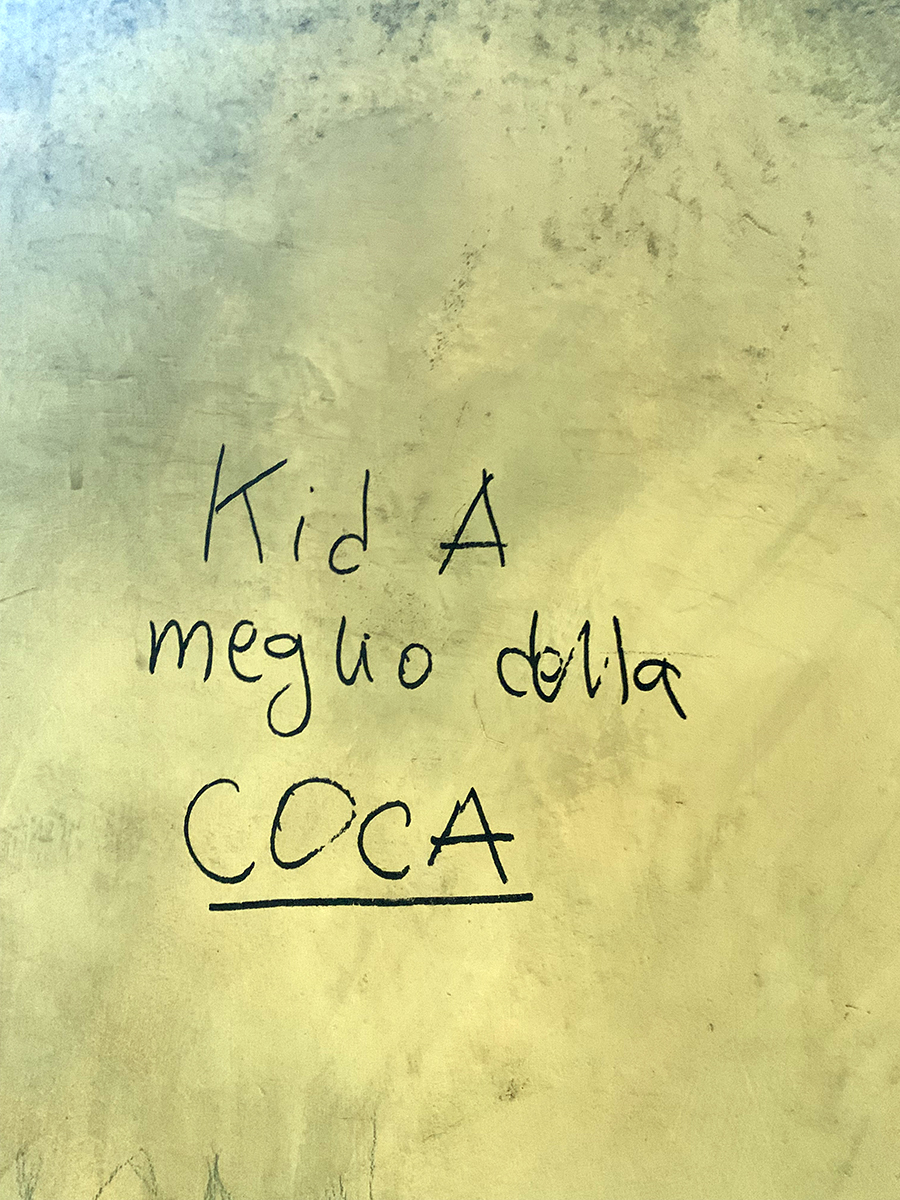 Kid A
meglio della
COCA